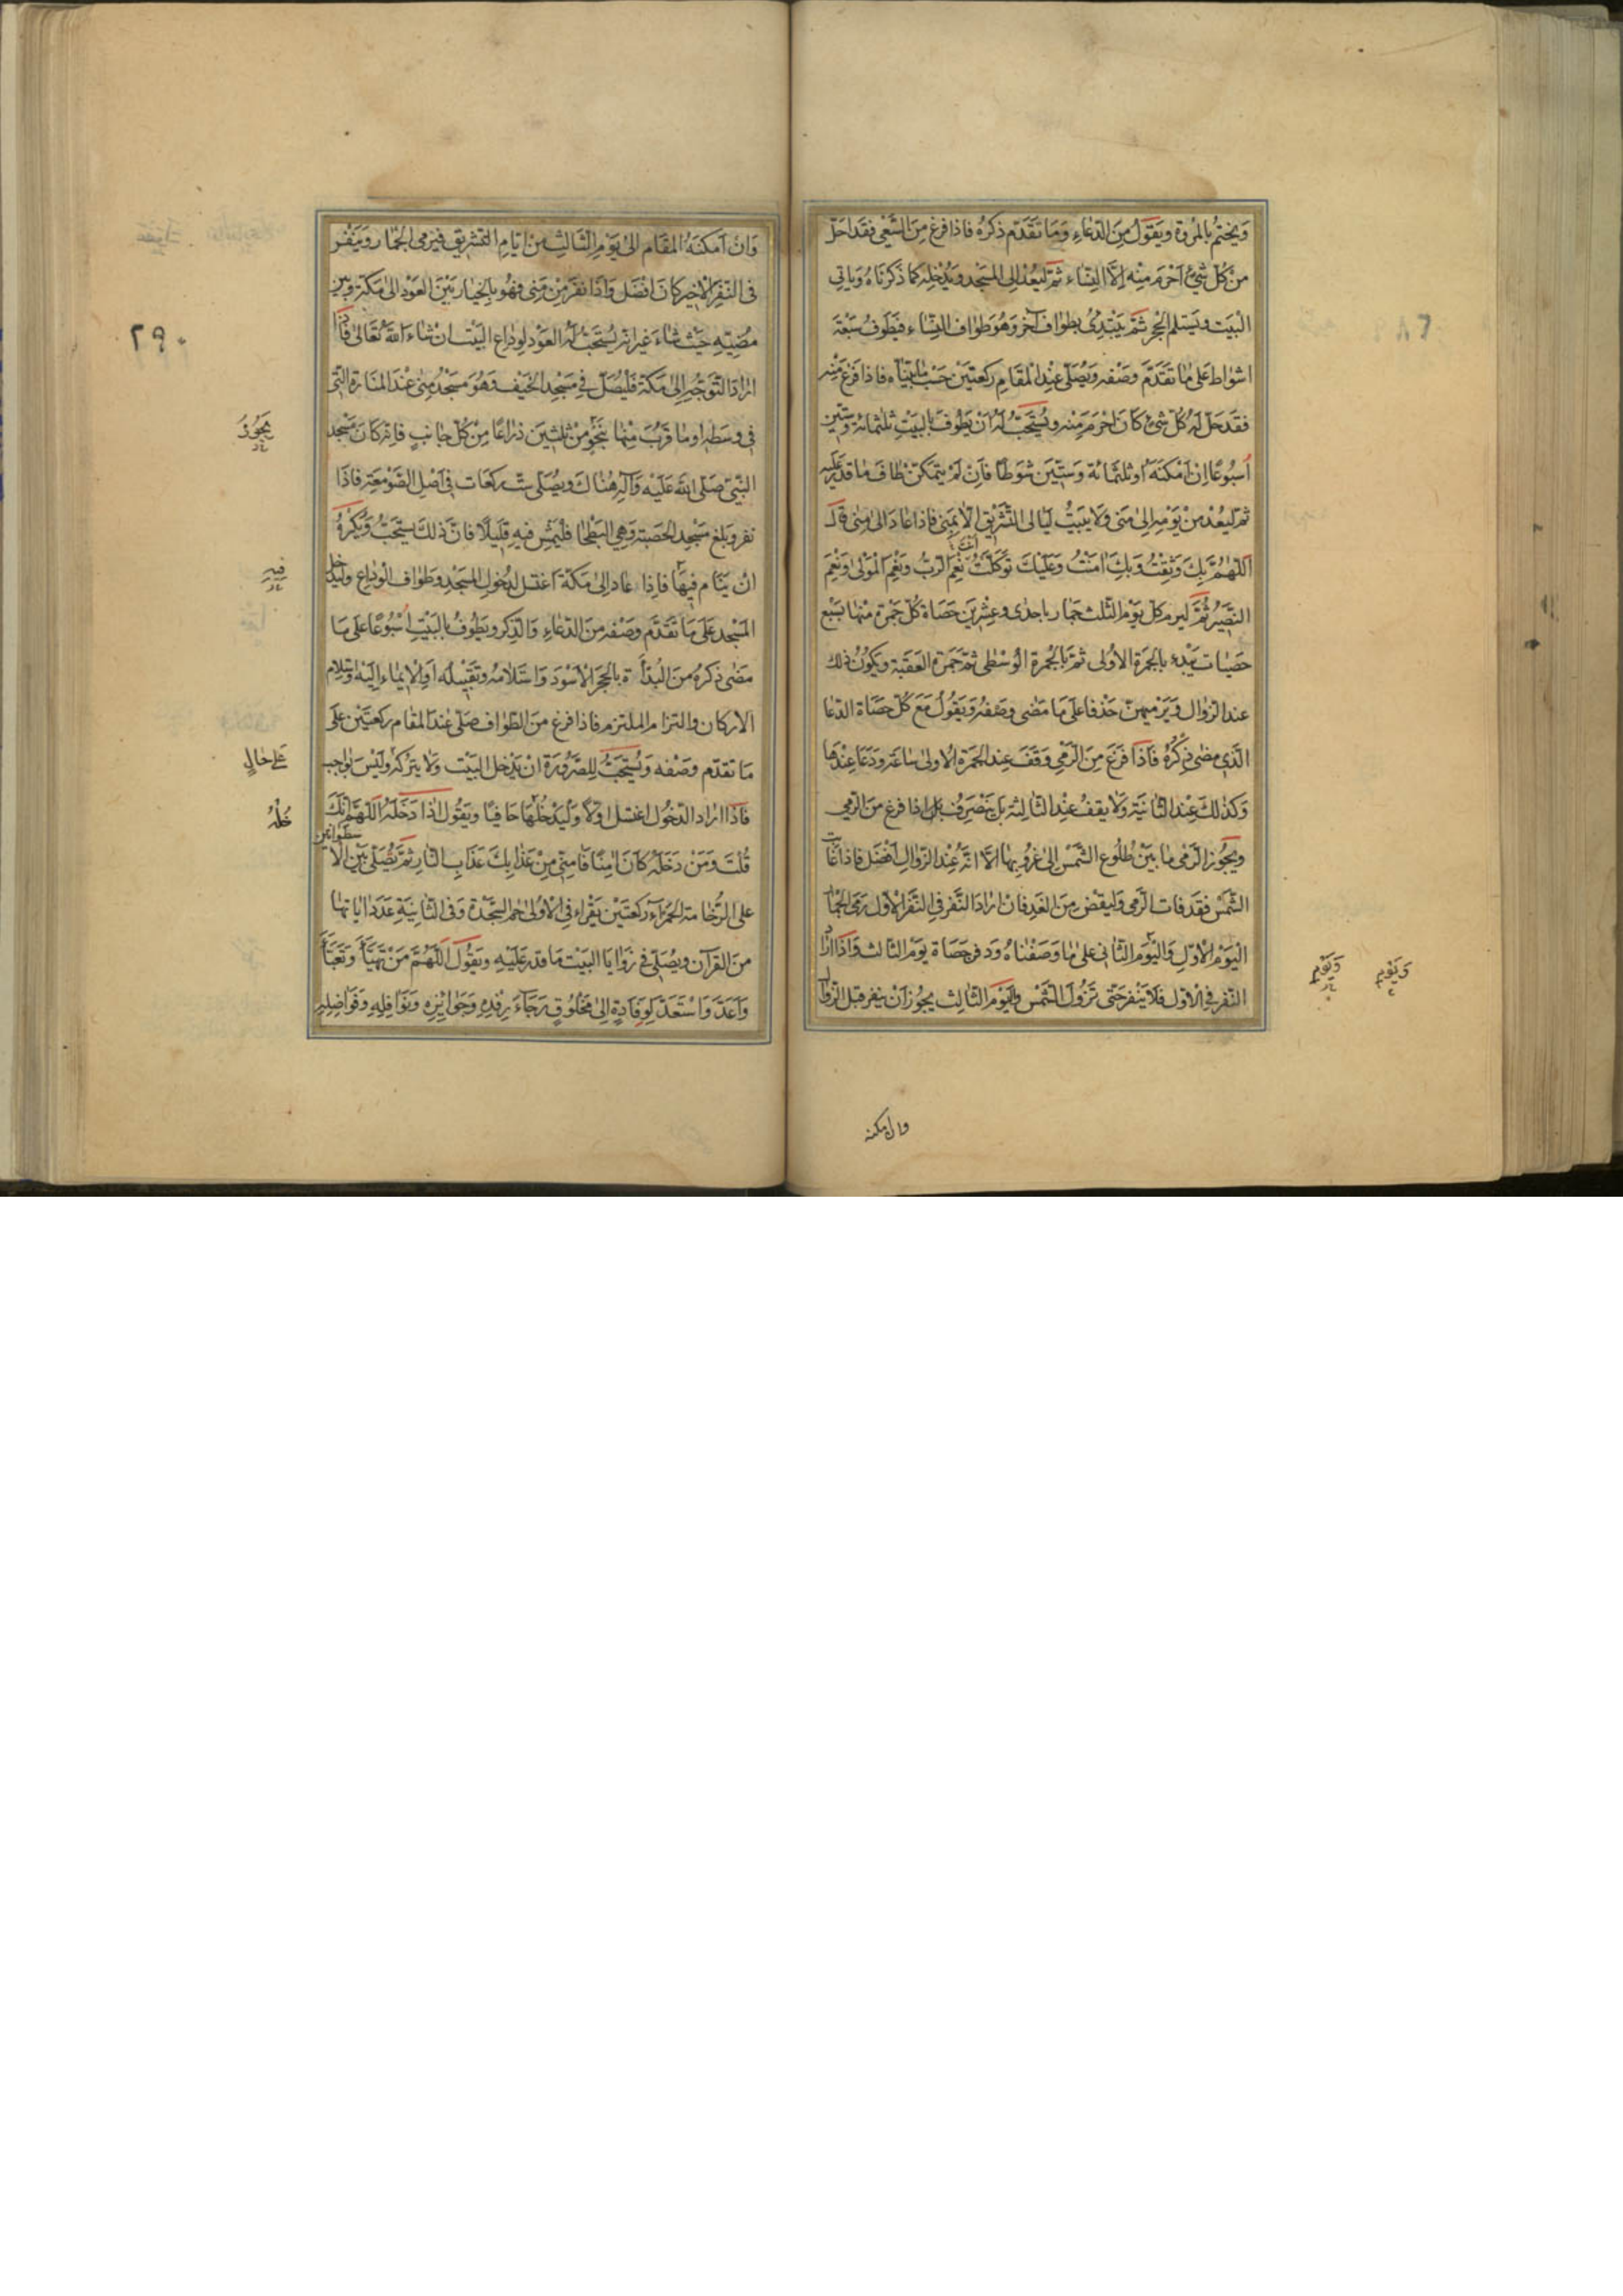 ويختم بالمروة ويقول من الدعاء وما تقدم ذكره فاذا فرغ من السعى فقد احل
من كل شئ احرم منه الا النساء ثم ليعد الى المسجد ويدخله كما ذكرناه وياتى
البيت ويستلم الحجر ثم يبتدئ بطواف آخر وهو طواف النساء فيطوف سبعة
اشواط على ما تقدم وصفه ويصلى عند المقام ركعتين حسب ما بيناه فاذا فرغ منه
فقد حل له كل شئ كان احرم منه ويستحب له ان يطوف بالبيت ثلثمائة وستين
اسبوعا ان امكنه او ثلثمائة وستين شوطا فان لم يتمكن طاف ما قدر عليه
ثم ليعد من يومه الى منى ولا يبيت ليالى التشريق الا بمنى فاذا عاد الى منى قال
اللهم بك وثقت وبك امنت وعليك توكلت نعم الرب ونعم المولى ونعم
النصير ثم ليرم كل يوم الثلث جمار باحدى وعشرين حصاة كل جمرة منها بسبع
حصيات يبدء بالجمرة الاولى ثم بالجمرة الوسطى ثم جمرة العقبة ويكون ذلك
عند الزوال ويرميهن حذفا على ما مضى وصفه ويقول مع كل حصاة الدعا
الذى مضى ذكره فاذا فرغ من الرمى وقف عند الجمرة الاولى ساعة ودعا عندها
وكذلك عند الثانية ولا يقف عند الثالثة بل ينصرف اذا فرغ من الرمى
ويجوز الرمى ما بين طلوع الشمس الى غروبها الا انه عند الزوال افضل فاذا غابت
الشمس فقد فات الرمى وليقض من الغد فان اراد النفر فى النفر الاول رمى الجمار
اليوم الاول واليوم الثانى على ما وصفناه ودفن حصاة يوم الثالث واذا اراد
النفر فى الاول فلا ينفر حتى تزول الشمس واليوم الثالث يجوز ان ينفر قبل الزوال
ويوم
ويوم
وان امكنه
وان امكنه المقام الى يوم الثالث من ايام التشريق فيرمى الجمار وينفر
فى النفر الاخير كان افضل واذا نفر من منى فهو بالخيار بين العود الى مكة وبين
مضيه حيث شاء غير انه يستحب له العود لوداع البيت ان شاء الله تعالى فاذا
اراد التوجه الى مكة فليصل فى مسجد الخيف وهو مسجد منى عند المنارة التى
فى وسطه او ما قرب منها بنحو من ثلثين ذراعا من كل جانب فانه كان مسجد
النبى صلى الله عليه وآله هناك ويصلى ست ركعات فى اصل الصومعة فاذا
نفر وبلغ مسجد الحصبة وهى البطحا فليمش فيه قليلا فان ذلك يستحب ويكره
ان ينام فيها فاذا عاد الى مكة اغتسل لدخول المسجد وطواف الوداع وليدخل
المسجد على ما تقدم وصفه من الدعاء والذكر ويطوف بالبيت اسبوعا على ما
مضى ذكره من البدأة بالحجر الاسود واستلامه وتقبيله او الايماء اليه واستلام
الاركان والتزام الملتزم فاذا فرغ من الطواف صلى عند المقام ركعتين على
ما تقدم وصفه ويستحب للصرورة ان يدخل البيت ولا يتركه وليس بواجب
فاذا اراد الدخول اغتسل اولا وليدخلها حافيا ويقول اذا دخله اللهم انك
قلت ومن دخله كان امنا فامنى من عذابك عذاب النار ثم يصلى بين الاسطوانتين
على الرخامة الحمراء ركعتين يقراء فى الاولى حم السجدة وفى الثانية عدد اياتها
من القرآن ويصلى فى زوايا البيت ما قدر عليه ويقول اللهم من تهيا وتعبا
واعد واستعد لوفادة الى مخلوق رجاء رفده وجوائزه ونوافله وفواضله
٢٩٠
يجوز
فيه
على حال